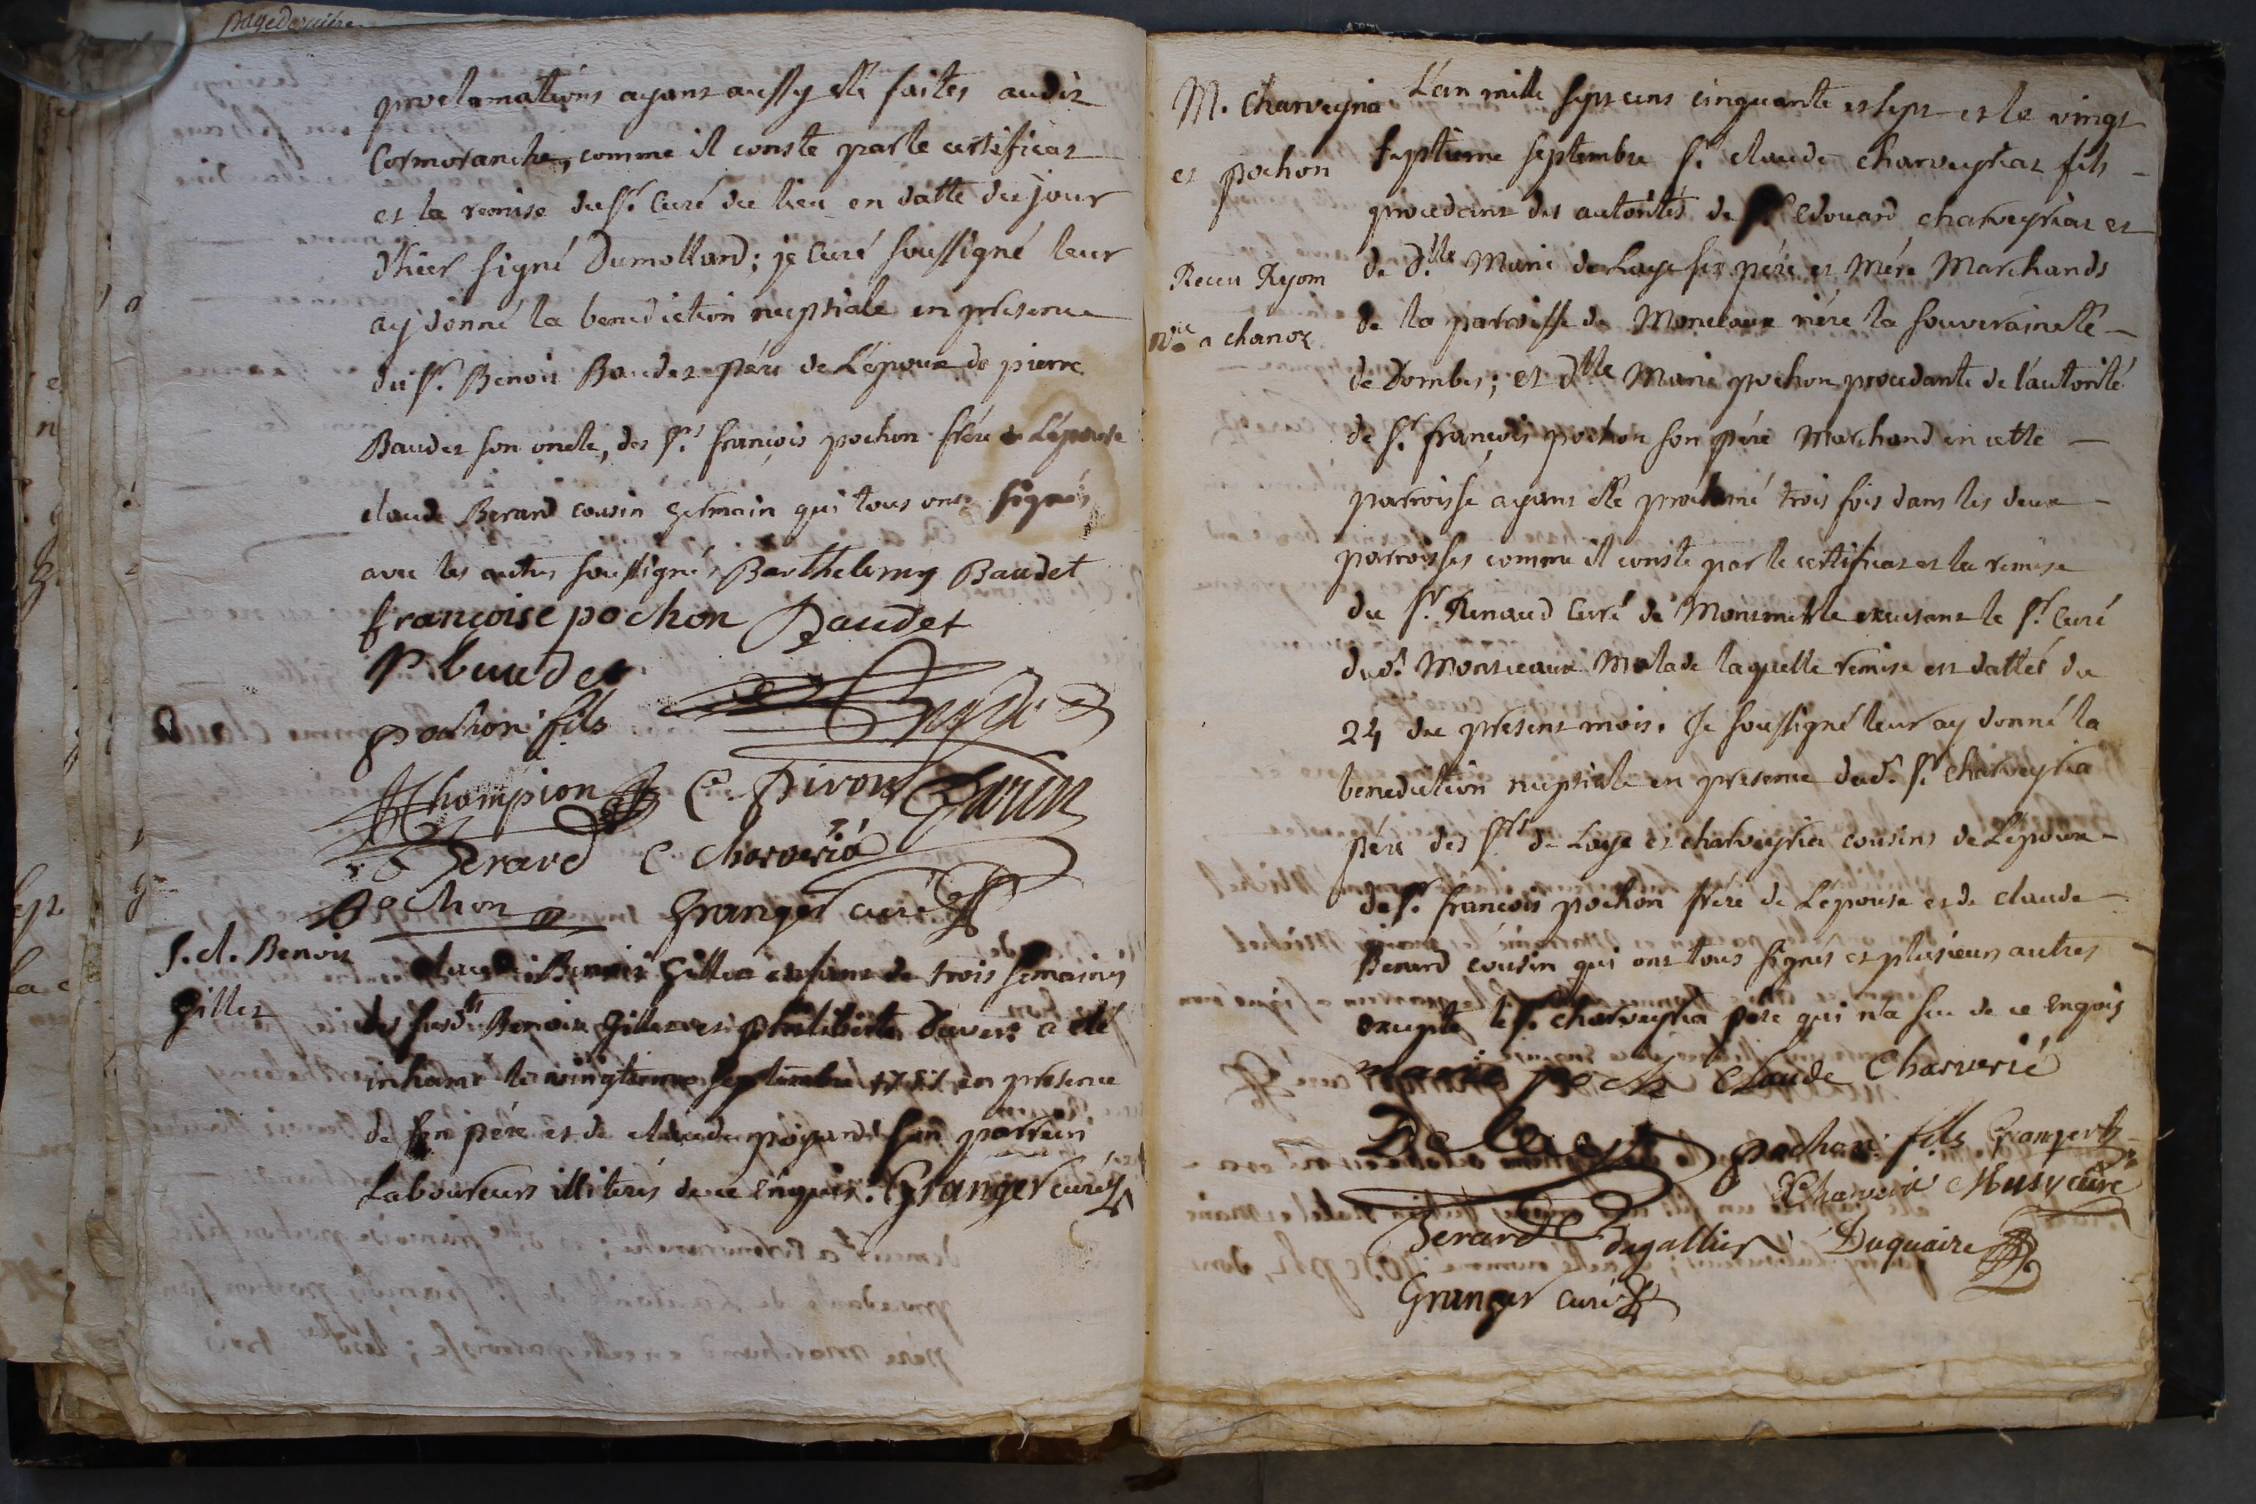 proclamations ayant aussy esté faites audit
Cormoranche, comme il conste par le certificat
et la remise du Sr. Curé du lieu en datte du jour
d'hier signé Dumolland; je Curé soussigné leur
ay donné la benediction nuptiale en presence
du Sr. Benoit Baudet pére de L'époux de pierre
Baudet son oncle, des Srs. françois pochon frére de L'épouse
claude Berard cousin germain qui tous ont signés
avec les autres soussignés Barthelemy Baudet
françoise pochon Baudet
P. baudet
pochon fils
Champion C. Pivon
Berard C Charverié
Pochon Granger curé
S. cl. Benoit
Gillet
claude Benoit Gillet enfant de trois semaines
des susdts Benoit Gillet et philiberte Duvert a eté
inhumé le vingtieme septembre 1757 en presence
de son pére et de claude poyand son parrein
Laboureurs illiterés de ce enquis. Granger curé
M. Charveyria
et pochon
Receu Ryom
Nre a chanoz
L'an mille sept cens cinquante et sept et le vingt
septieme septembre Sr. claude charveyriat fils
procedant des autorités de Sr. Edouard charveyriat et
de Dlle Marie de Laye ses pére et Mére Marchands
de la parroisse de Monceaux riére la souveraineté
de Dombes; et Dlle Marie pochon procedante de l'autorité
de Sr. françois pochon son pére Marchand en cette
parroisse ayant esté proclamé trois fois dans les deux
parroisses comme il conste par le certificat et la remise
du Sr. Renaud Curé de Montmerle excusant le Sr. Curé
dud. Montceaux Malade laquelle remise est dattée du
24 du present mois. Je soussigné leur ay donné la
benediction nuptiale en presence dud. Sr. Charveyria
pére des Srs de Laye et charveyria cousins de L'époux
de Sr. françois pochon frére de L'épouse et de claude
Berard cousin qui ont tous signés et plusieurs autres
excepté le Sr. Charveyria pére qui n'a scu de ce Enquis
marie poch Claude Charverié
De laye pochon fils Granger
Charverié Musy curé
Berard Dugallier Duquaire
Granger curé